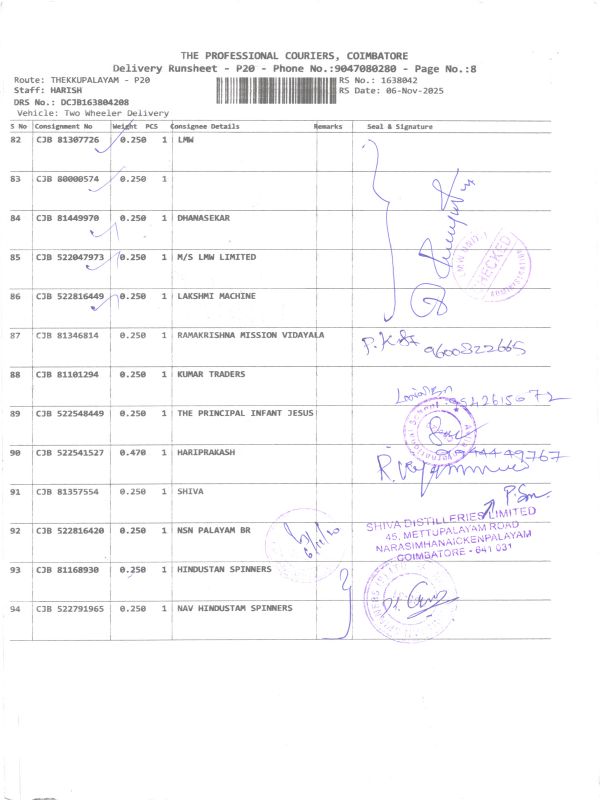 THE PROFESSIONAL COURIERS, COIMBATORE
Delivery Runsheet - P20 - Phone No.:9047080280 - Page No.:8
Route: THEKKUPALAYAM - P20 RS No.: 1638042
Staff: HARISH RS Date: 06-Nov-2025
DRS No.: DCJB163804208
Vehicle: Two Wheeler Delivery
S No Consignment No Weight PCS Consignee Details Remarks Seal & Signature
82 CJB 81307726 0.250 1 LMW
83 CJB 80000574 0.250 1
84 CJB 81449970 0.250 1 DHANASEKAR
85 CJB 522047973 0.250 1 M/S LMW LIMITED
CHECKED
86 CJB 522816449 0.250 1 LAKSHMI MACHINE
87 CJB 81346814 0.250 1 RAMAKRISHNA MISSION VIDAYALA
9600822665
88 CJB 81101294 0.250 1 KUMAR TRADERS
89 CJB 522548449 0.250 1 THE PRINCIPAL INFANT JESUS
90 CJB 522541527 0.470 1 HARIPRAKASH
9944449767
91 CJB 81357554 0.250 1 SHIVA
P.Sm
92 CJB 522816420 0.250 1 NSN PALAYAM BR
SHIVA DISTILLERIES LIMITED
45, METTUPALAYAM ROAD
NARASIMHANAICKENPALAYAM
COIMBATORE - 641 031
93 CJB 81168930 0.250 1 HINDUSTAN SPINNERS
94 CJB 522791965 0.250 1 NAV HINDUSTAM SPINNERS